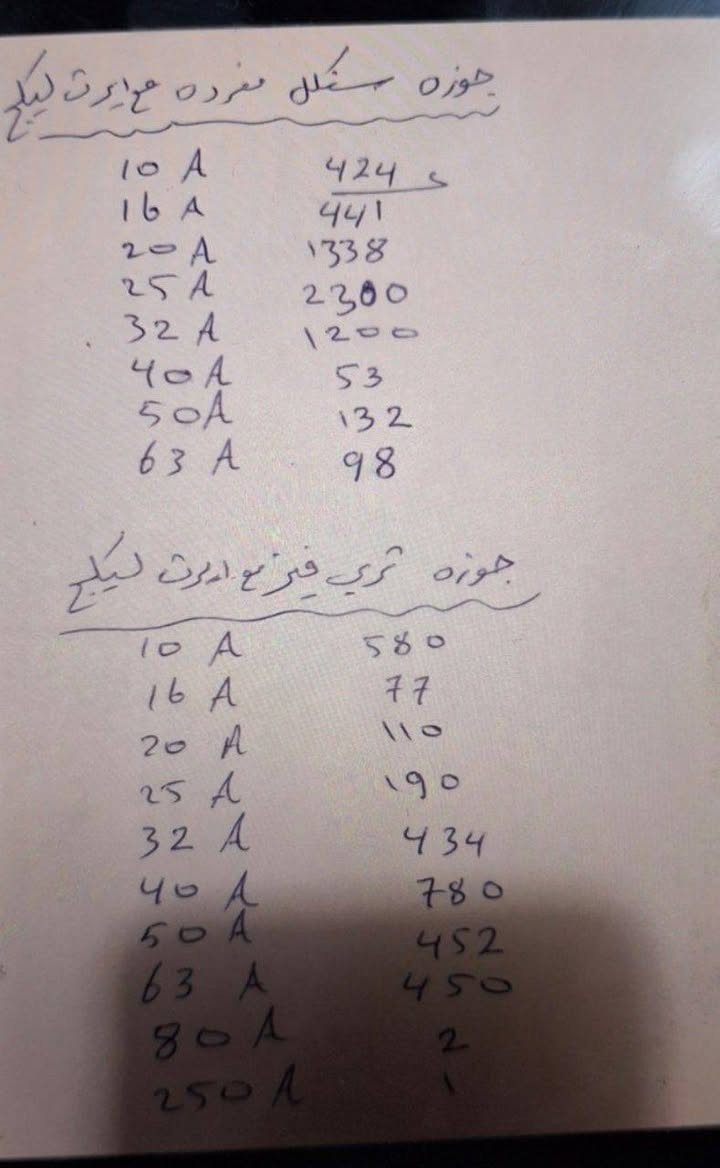 جوزه سنكل مفرده مع ايرث ليكج
10 A 424
16 A 441
20 A 1338
25 A 2300
32 A 1200
40 A 53
50 A 132
63 A 98
جوزه ثري فيز مع ايرث ليكج
10 A 580
16 A 77
20 A 110
25 A 190
32 A 434
40 A 780
50 A 452
63 A 450
80 A 2
250 A 1